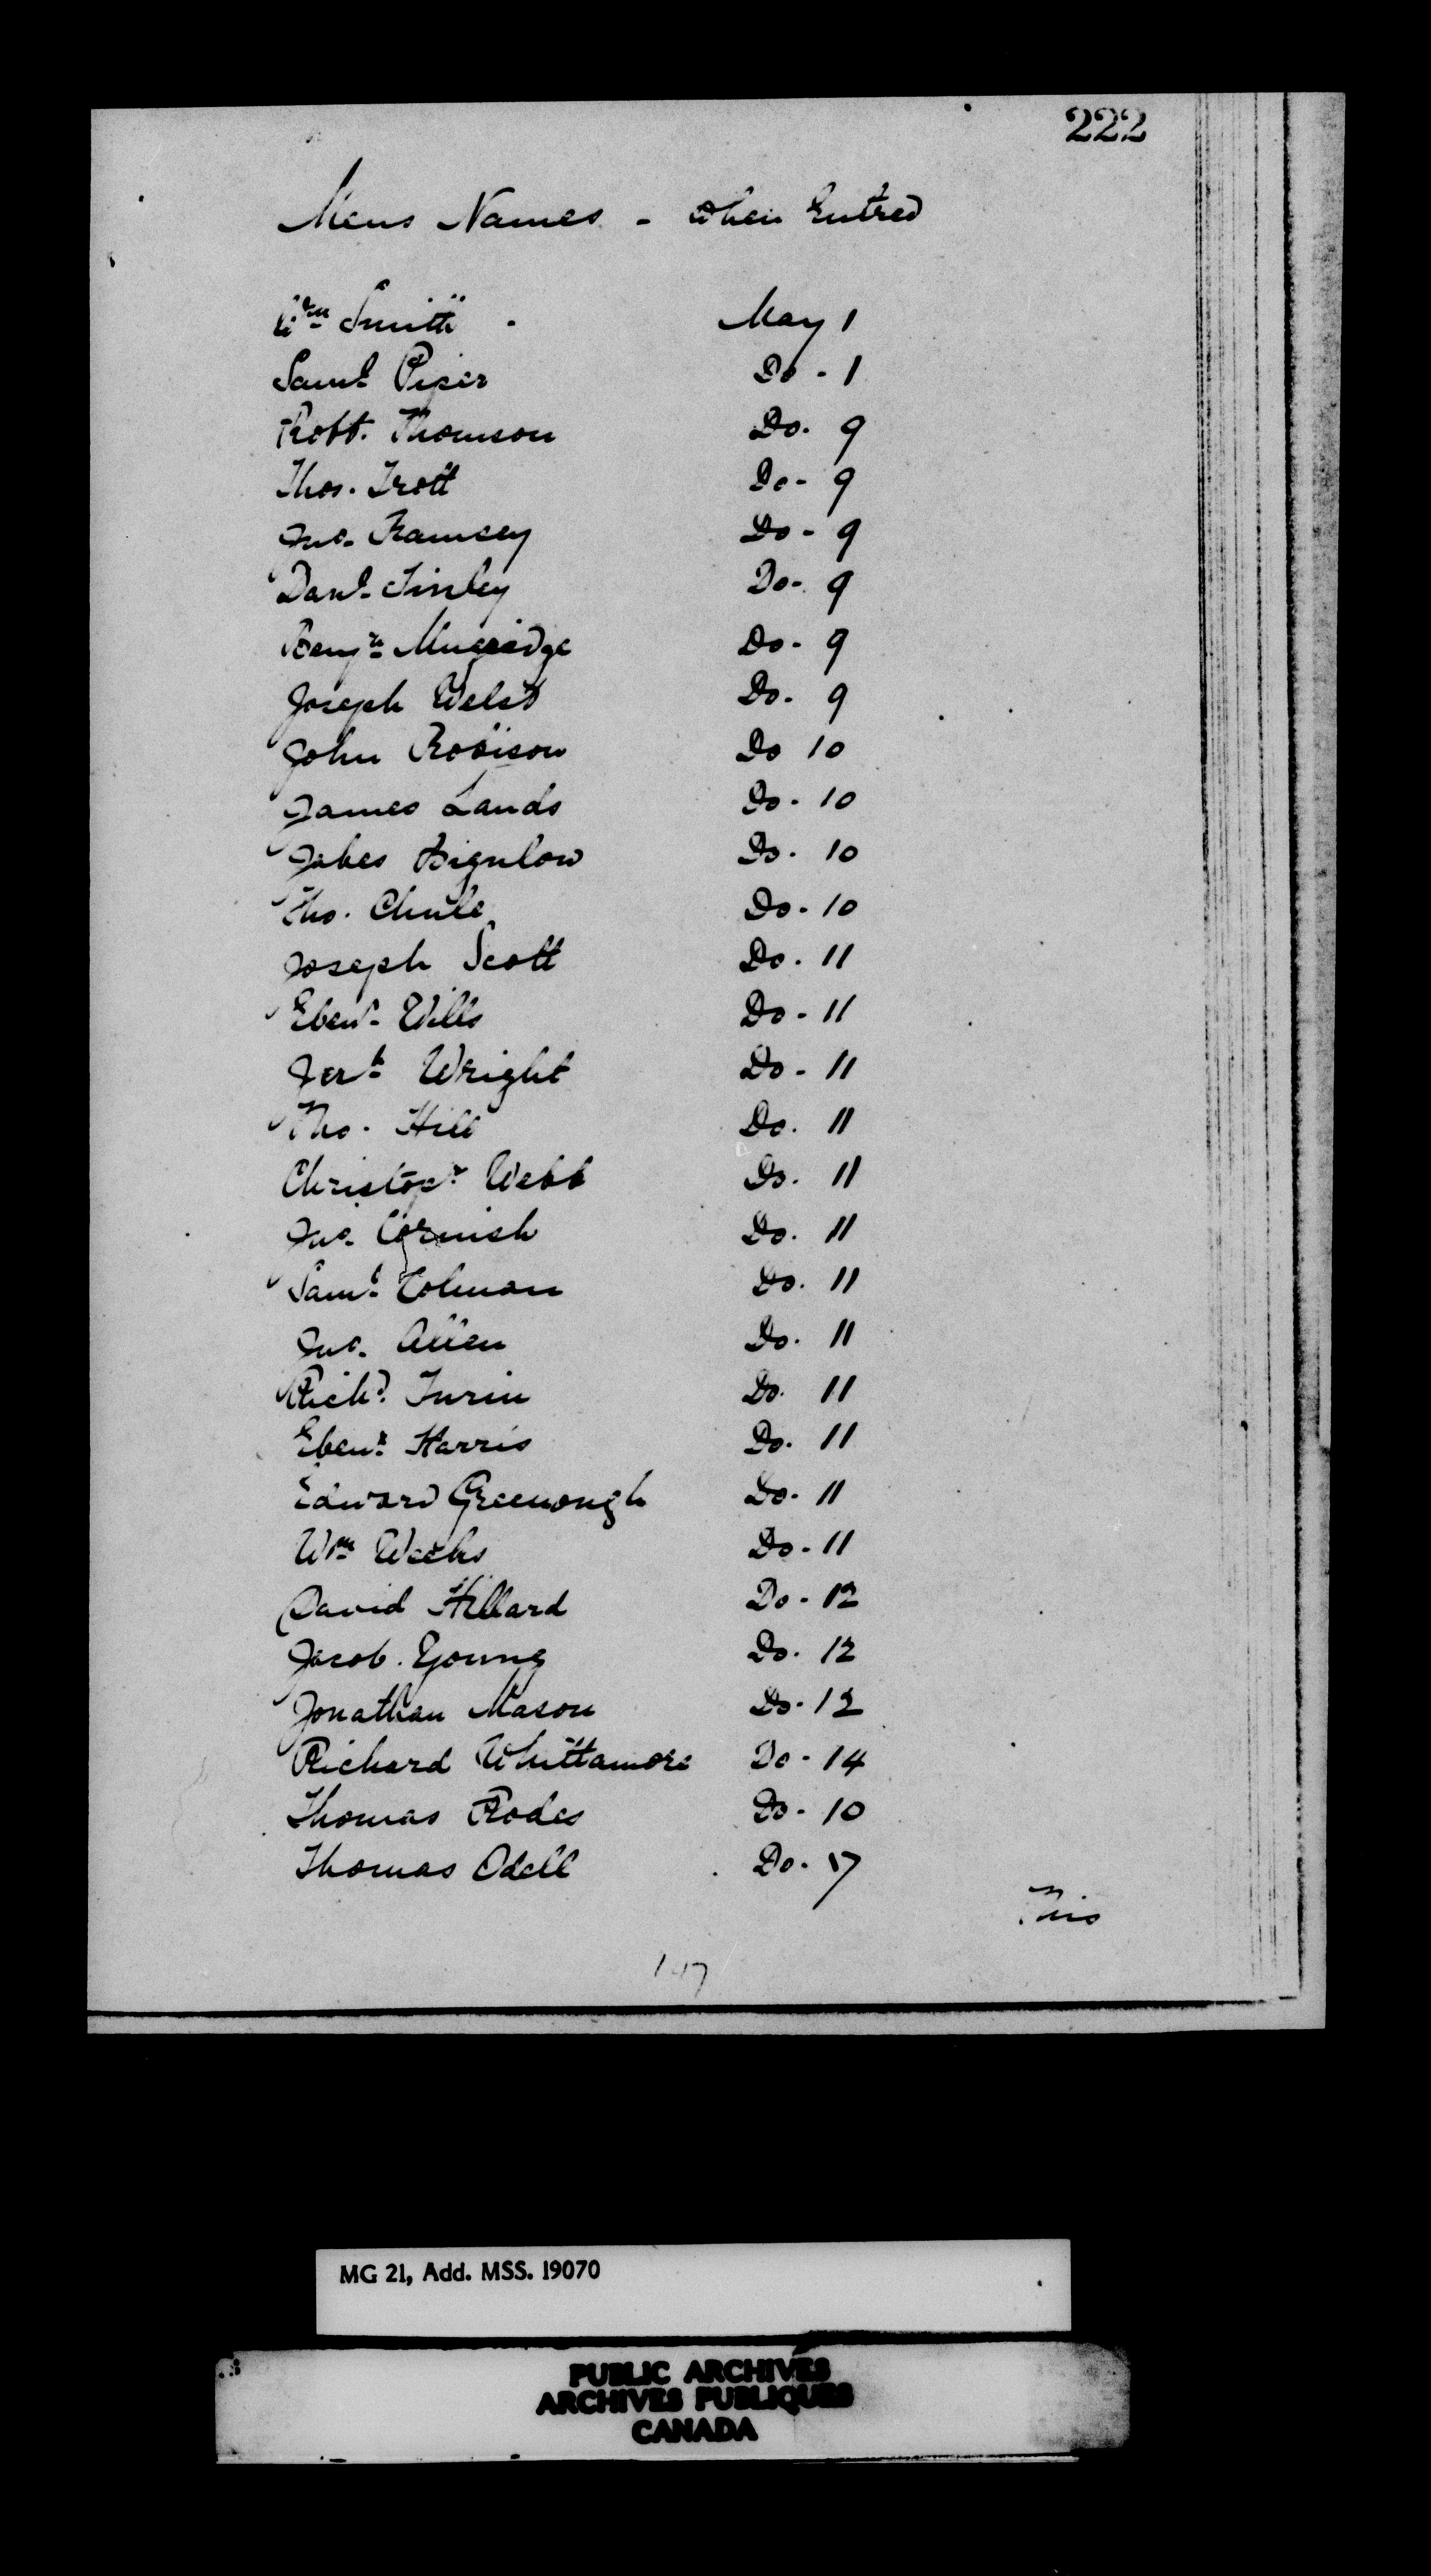 222
Mens Names - When Entred
Wm Smith - May 1
Saml Piper Do - 1
Robt. Thomson Do. 9
Thos. Trott Do - 9
Jno. Ramsey Do - 9
Danl Tinley Do - 9
Benjn Mugridge Do - 9
Joseph Welsd Do. 9
John Robison Do 10
James Lands Do. 10
Jabes Bignlow Do. 10
Tho. Chule Do - 10
Joseph Scott Do. 11
Ebenr Wills Do - 11
Jerh Wright Do - 11
Tho. Hill Do. 11
Christopr Webb Do. 11
Jno. Cornish Do. 11
Saml Tolman Do. 11
Jno. Allen Do. 11
Richd Turin Do. 11
Ebenr Harris Do. 11
Edward Greenough Do. 11
Wm Weeks Do - 11
David Hillard Do - 12
Jacob. Young Do. 12
Jonathan Mason Do - 12
Richard Whittamore Do - 14
Thomas Rodes Do - 10
Thomas Odell Do. 17
This
147
MG 21, Add. MSS. 19070
PUBLIC ARCHIVES
ARCHIVES PUBLIQUES
CANADA